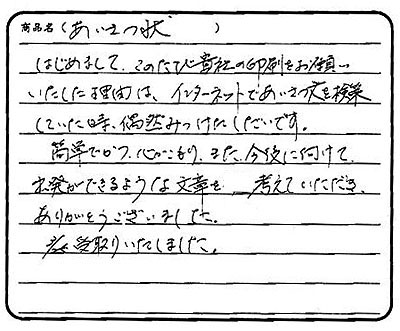 商品名（あいさつ状　　）
はじめまして、このたび貴社の印刷をお願い
いたした理由は、インターネットであいさつ状を検索
していた時、偶然みつけたしだいです。
簡単でかつ、心がこもり、また、今後に向けて、
出発ができるような文章を 考えていただき、
ありがとうございました。
受取りいたしました。